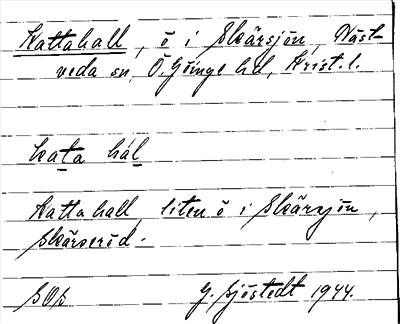 Kattahall, ö i Skärsjön, Väst-
veda sn, Ö. Göinge hd, Krist. l.
kata hál
Katta hall, liten ö i Skärsjön,
Skärseröd.
SOS G. Sjöstedt 1944.